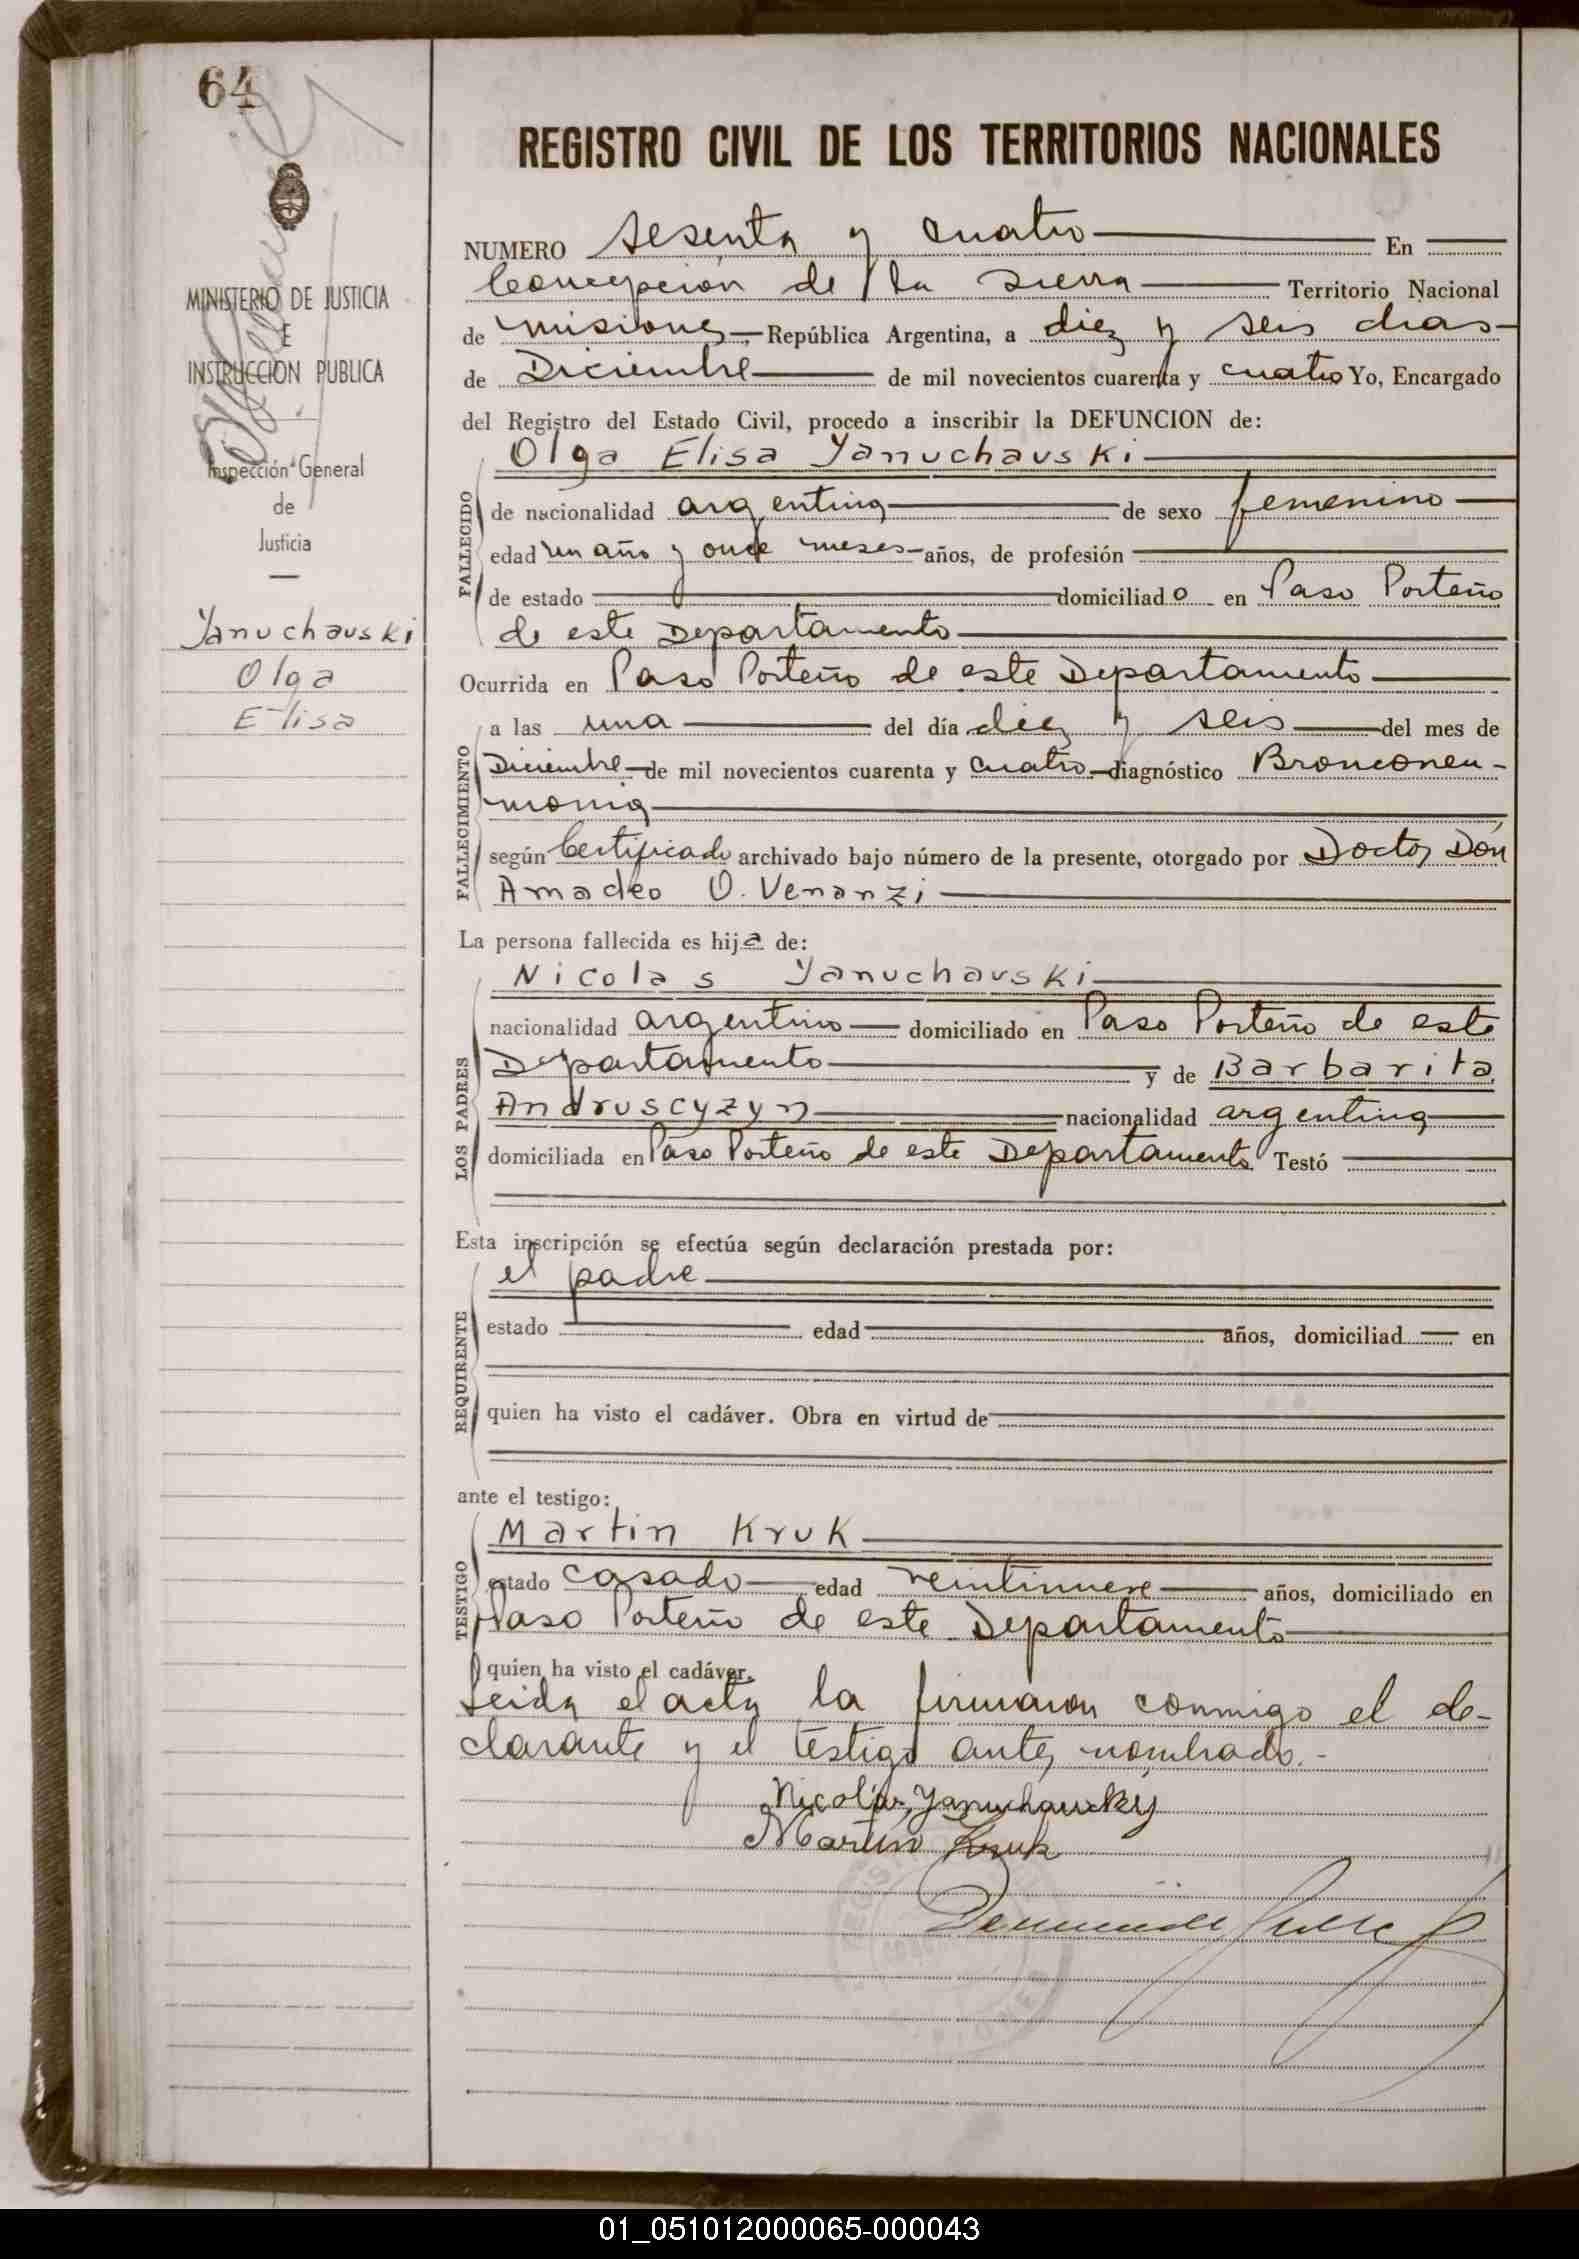 64
MINISTERIO DE JUSTICIA
E
INSTRUCCION PUBLICA
Inspección General
de
Justicia
Yanuchauski
Olga
Elisa
REGISTRO CIVIL DE LOS TERRITORIOS NACIONALES
NUMERO sesenta y cuatro En
Concepción de la Sierra Territorio Nacional
de misiones República Argentina, a diez y seis dias
de Diciembre de mil novecientos cuarenta y cuatro Yo, Encargado
del Registro del Estado Civil, procedo a inscribir la DEFUNCION de:
Olga Elisa Yanuchauski
FALLECIDO
de nacionalidad argentina de sexo femenino
edad un año y once meses años, de profesión
de estado domiciliado en Paso Porteño
de este Departamento
Ocurrida en Paso Porteño de este Departamento
FALLECIMIENTO
a las una del día diez y seis del mes de
Diciembre de mil novecientos cuarenta y cuatro diagnóstico Bronconeu-
monia
según Certificado archivado bajo número de la presente, otorgado por Doctor Don
Amadeo O. Venanzi
La persona fallecida es hija de:
LOS PADRES
Nicolas Yanuchauski
nacionalidad argentino domiciliado en Paso Porteño de este
Departamento y de Barbarita
Andruscyzyn nacionalidad argentina
domiciliada en Paso Porteño de este Departamento Testó
Esta inscripción se efectúa según declaración prestada por:
REQUIRENTE
el padre
estado edad años, domiciliad en
quien ha visto el cadáver. Obra en virtud de
ante el testigo:
TESTIGO
Martin Kruk
estado casado edad veintinueve años, domiciliado en
Paso Porteño de este Departamento
quien ha visto el cadáver.
Leida el acta la firmaron conmigo el de-
clarante y el testigo antes nombrado.-
Nicolás Yanuchausky
Martin Kruk
01_051012000065-000043